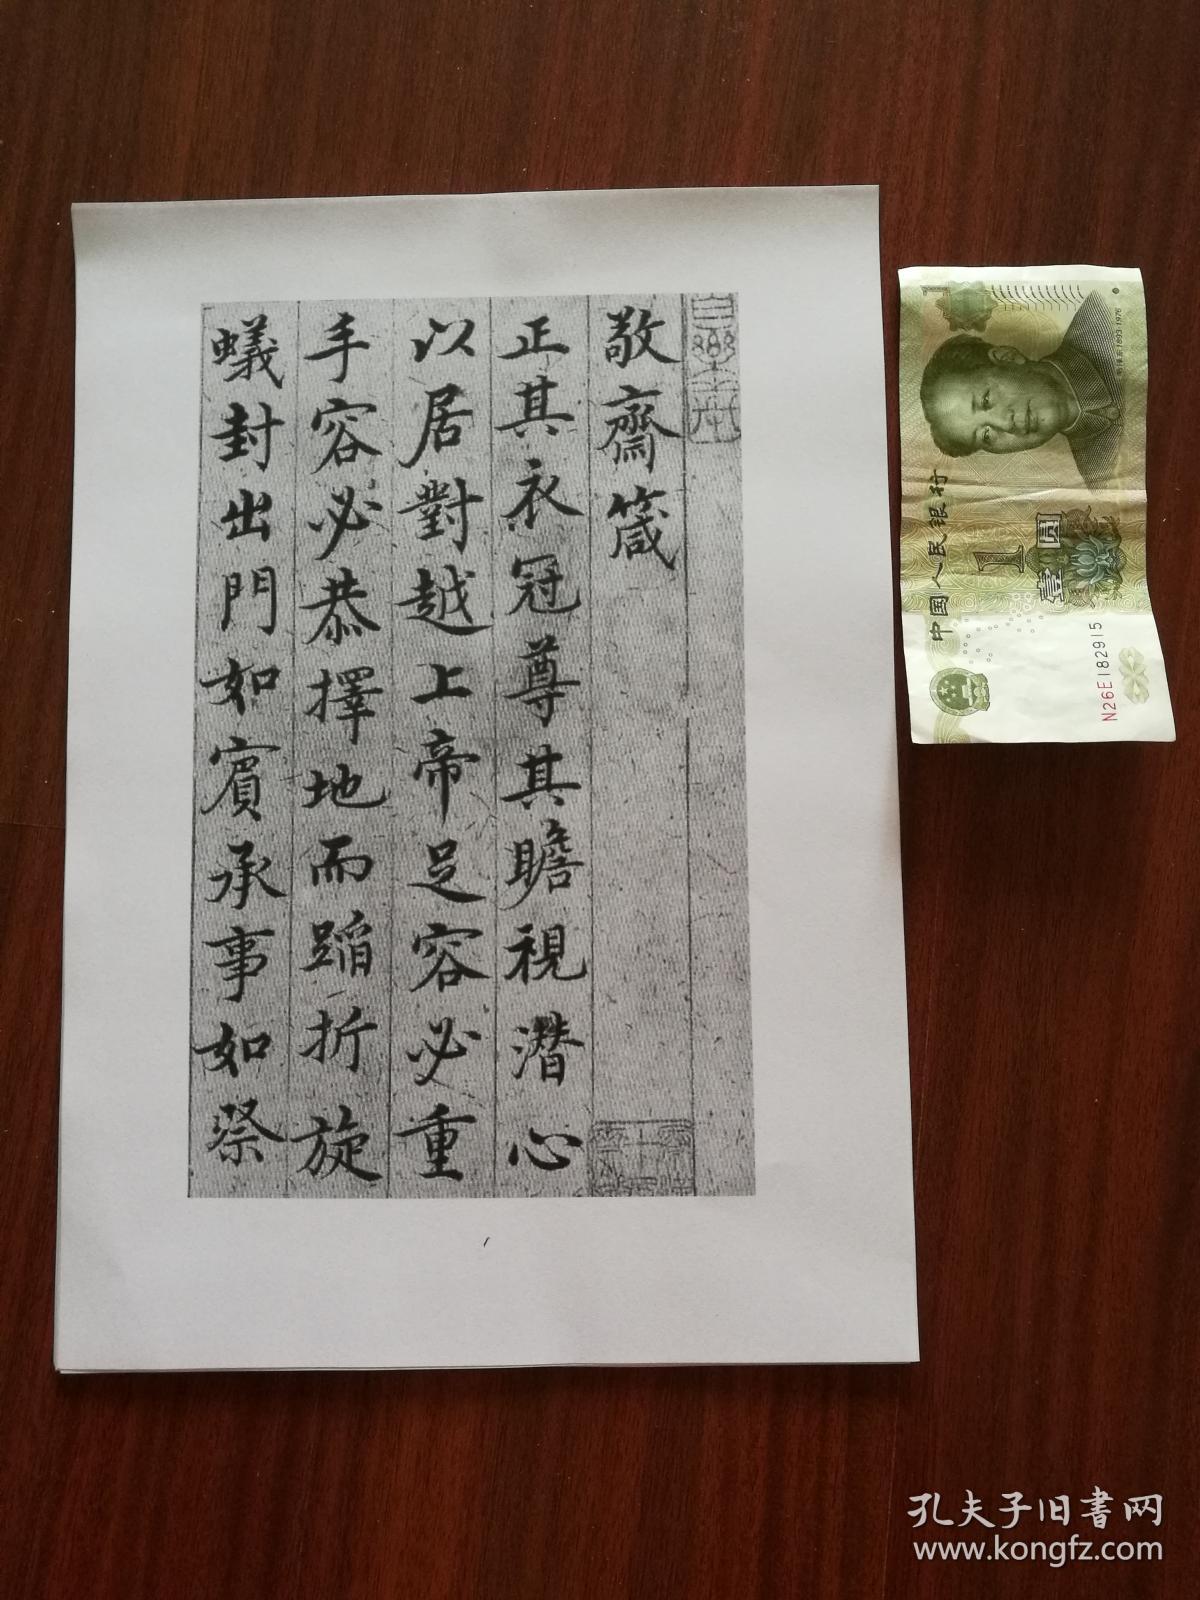 敬齋箴
正其衣冠尊其瞻視潛心
以居對越上帝足容必重
手容必恭擇地而蹈折旋
蟻封出門如賓承事如祭
中国人民银行
1
壹圆
N26E182915
1
毛泽东1893-1976
孔夫子旧书网
www.kongfz.com